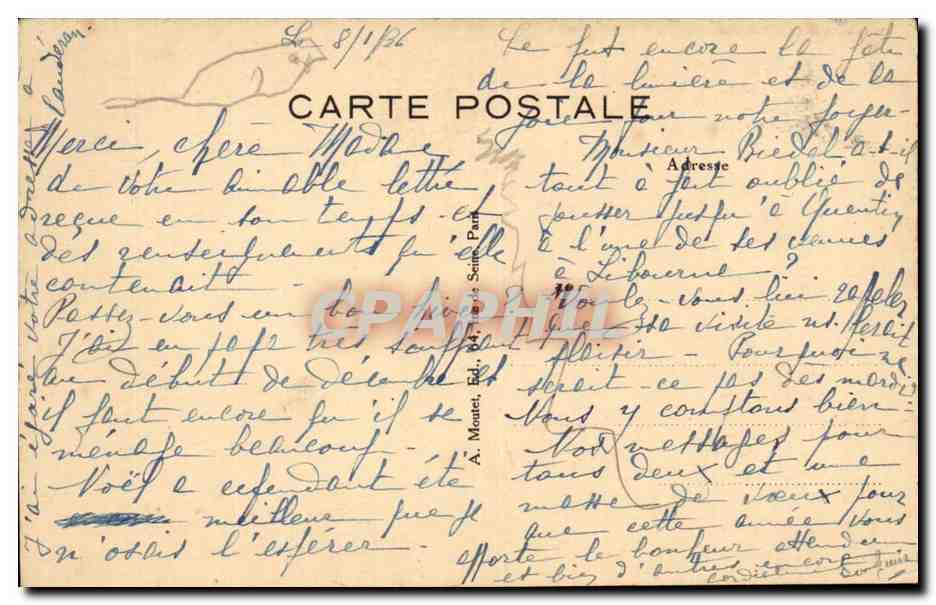 Le 8/1/36
CARTE POSTALE
Merci, chère Madame
de votre aimable lettre
reçue en son temps et
des renseignements qu'elle
contenait -
Passez-vous un bon hiver ?
J'ai eu papa très souffrant
au début de décembre et
il faut encore qu'il se
ménage beaucoup -
Noël a cependant été
meilleur que je
n'osais l'espérer -
Ce fut encore la fête
de la lumière et de la
joie pour notre foyer -
Monsieur Riedel a-t-il
Adresse
tout à fait oublié de
pousser jusqu'à Quentin
à l'une de ses venues
à Libourne ?
Voulez-vous lui rappeler
que sa visite ns. ferait
plaisir - Pourquoi ne
serait-ce pas des mardis
Nous y comptons bien -
Nos messages pour
tous deux et une
masse de vœux pour
que cette année vous
apporte le bonheur attendu
et bien d'autres encore
cordialement
J'ai égaré votre adresse à
Caudéran.
A. Moutet, Éd., 64, rue de Seine, Paris
CPAPHIL